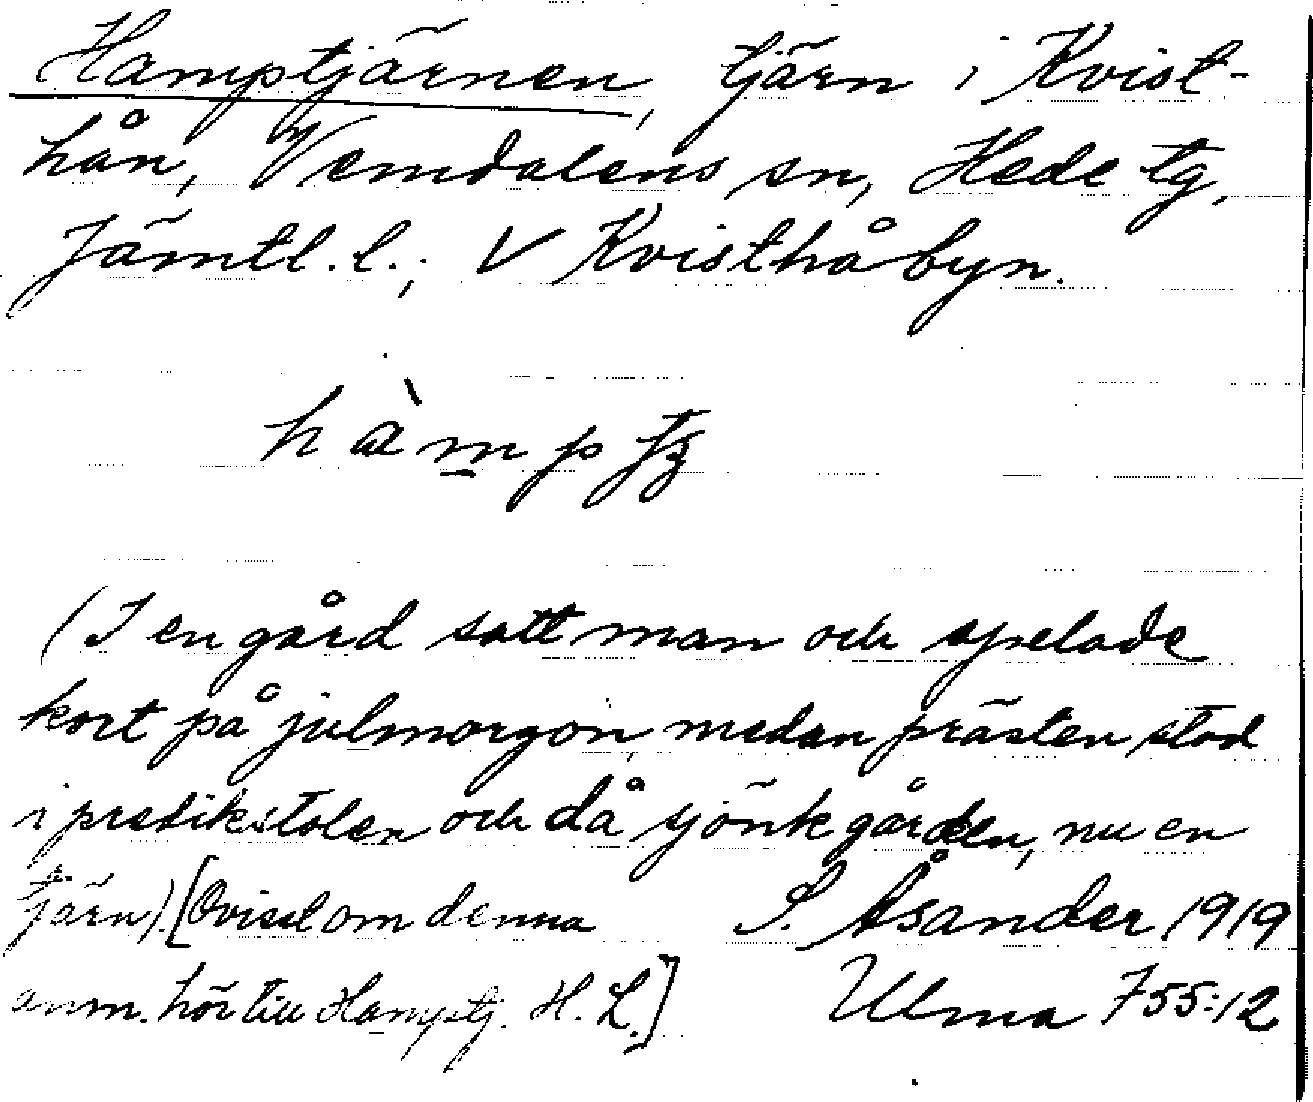 Hamptjärnen, tjärn i Kvist-
hån, Vemdalens sn, Hede tg,
Jämtl. l.; V Kvisthåbyn.
hàmp
(I en gård satt man och spelade
kort på julmorgon, medan prästen stod
i predikstolen och då sjönk gården, nu en
tjärn). [Ovisst om denna S. Åsander 1919
anm. hör till Hamptj. H. L.] Ulma 755:12